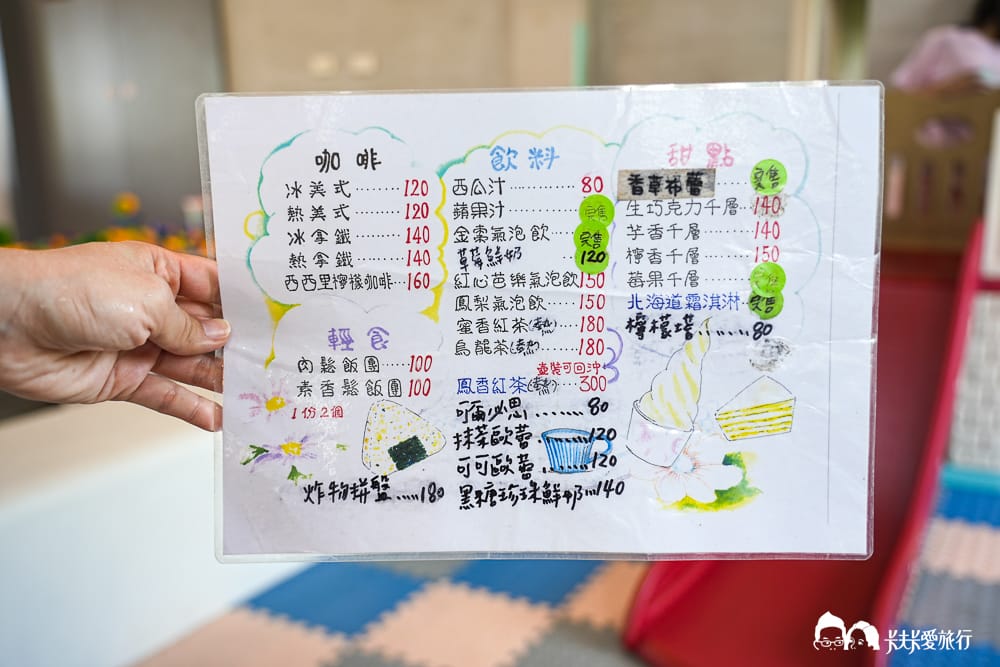 咖啡
冰美式········120
熱美式········120
冰拿鐵········140
熱拿鐵········140
西西里檸檬咖啡···160
輕食
肉鬆飯團····100
素香鬆飯團 100
1份2個
炸物拼盤.....180
飲料
西瓜汁············80
蘋果汁 完售
金棗氣泡飲 完售
草莓鮮奶 120
紅心芭樂氣泡飲150
鳳梨氣泡飲·····150
蜜香紅茶(熱)····180
烏龍茶(熱)······180
壺裝可回沖
鳳香紅茶(熱)···300
可爾必思.......80
抹茶歐蕾......120
可可歐蕾......120
黑糖珍珠鮮奶...140
甜點
香草布蕾 ···· 完售
生巧克力千層··140
芋香千層·····140
檸香千層·····150
莓果千層·····
北海道霜淇淋· 完售
檸檬塔.......80
卡卡愛旅行